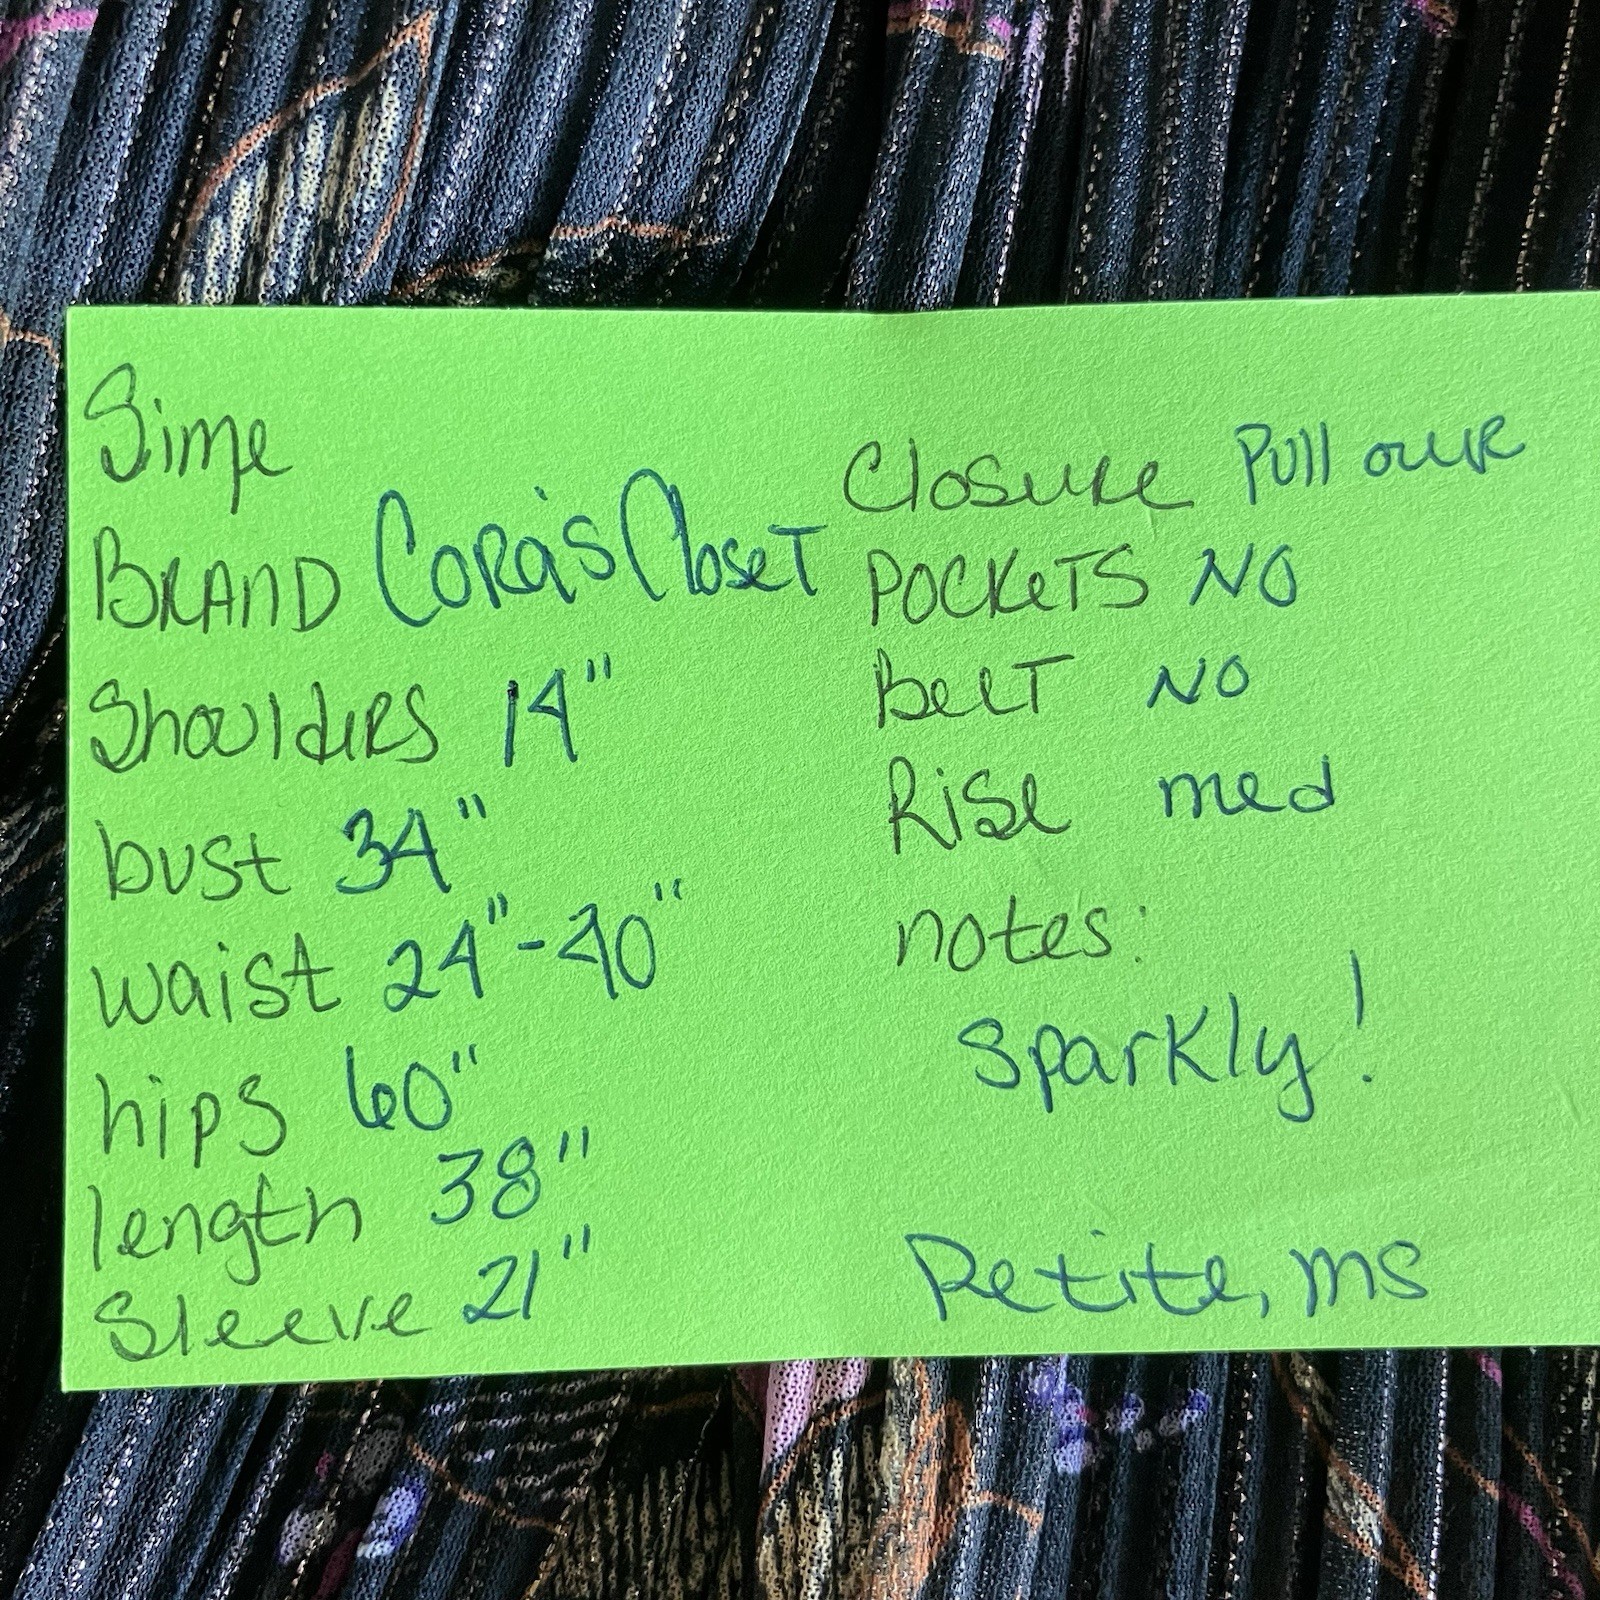 Sime
BRAND CORa's Closet
Shoulders 14"
bust 34"
waist 24"-40"
hips 60"
length 38"
Sleeve 21"
Closure Pull over
POCKeTS NO
Belt NO
Rise med
notes:
Sparkly!
Petite, ms